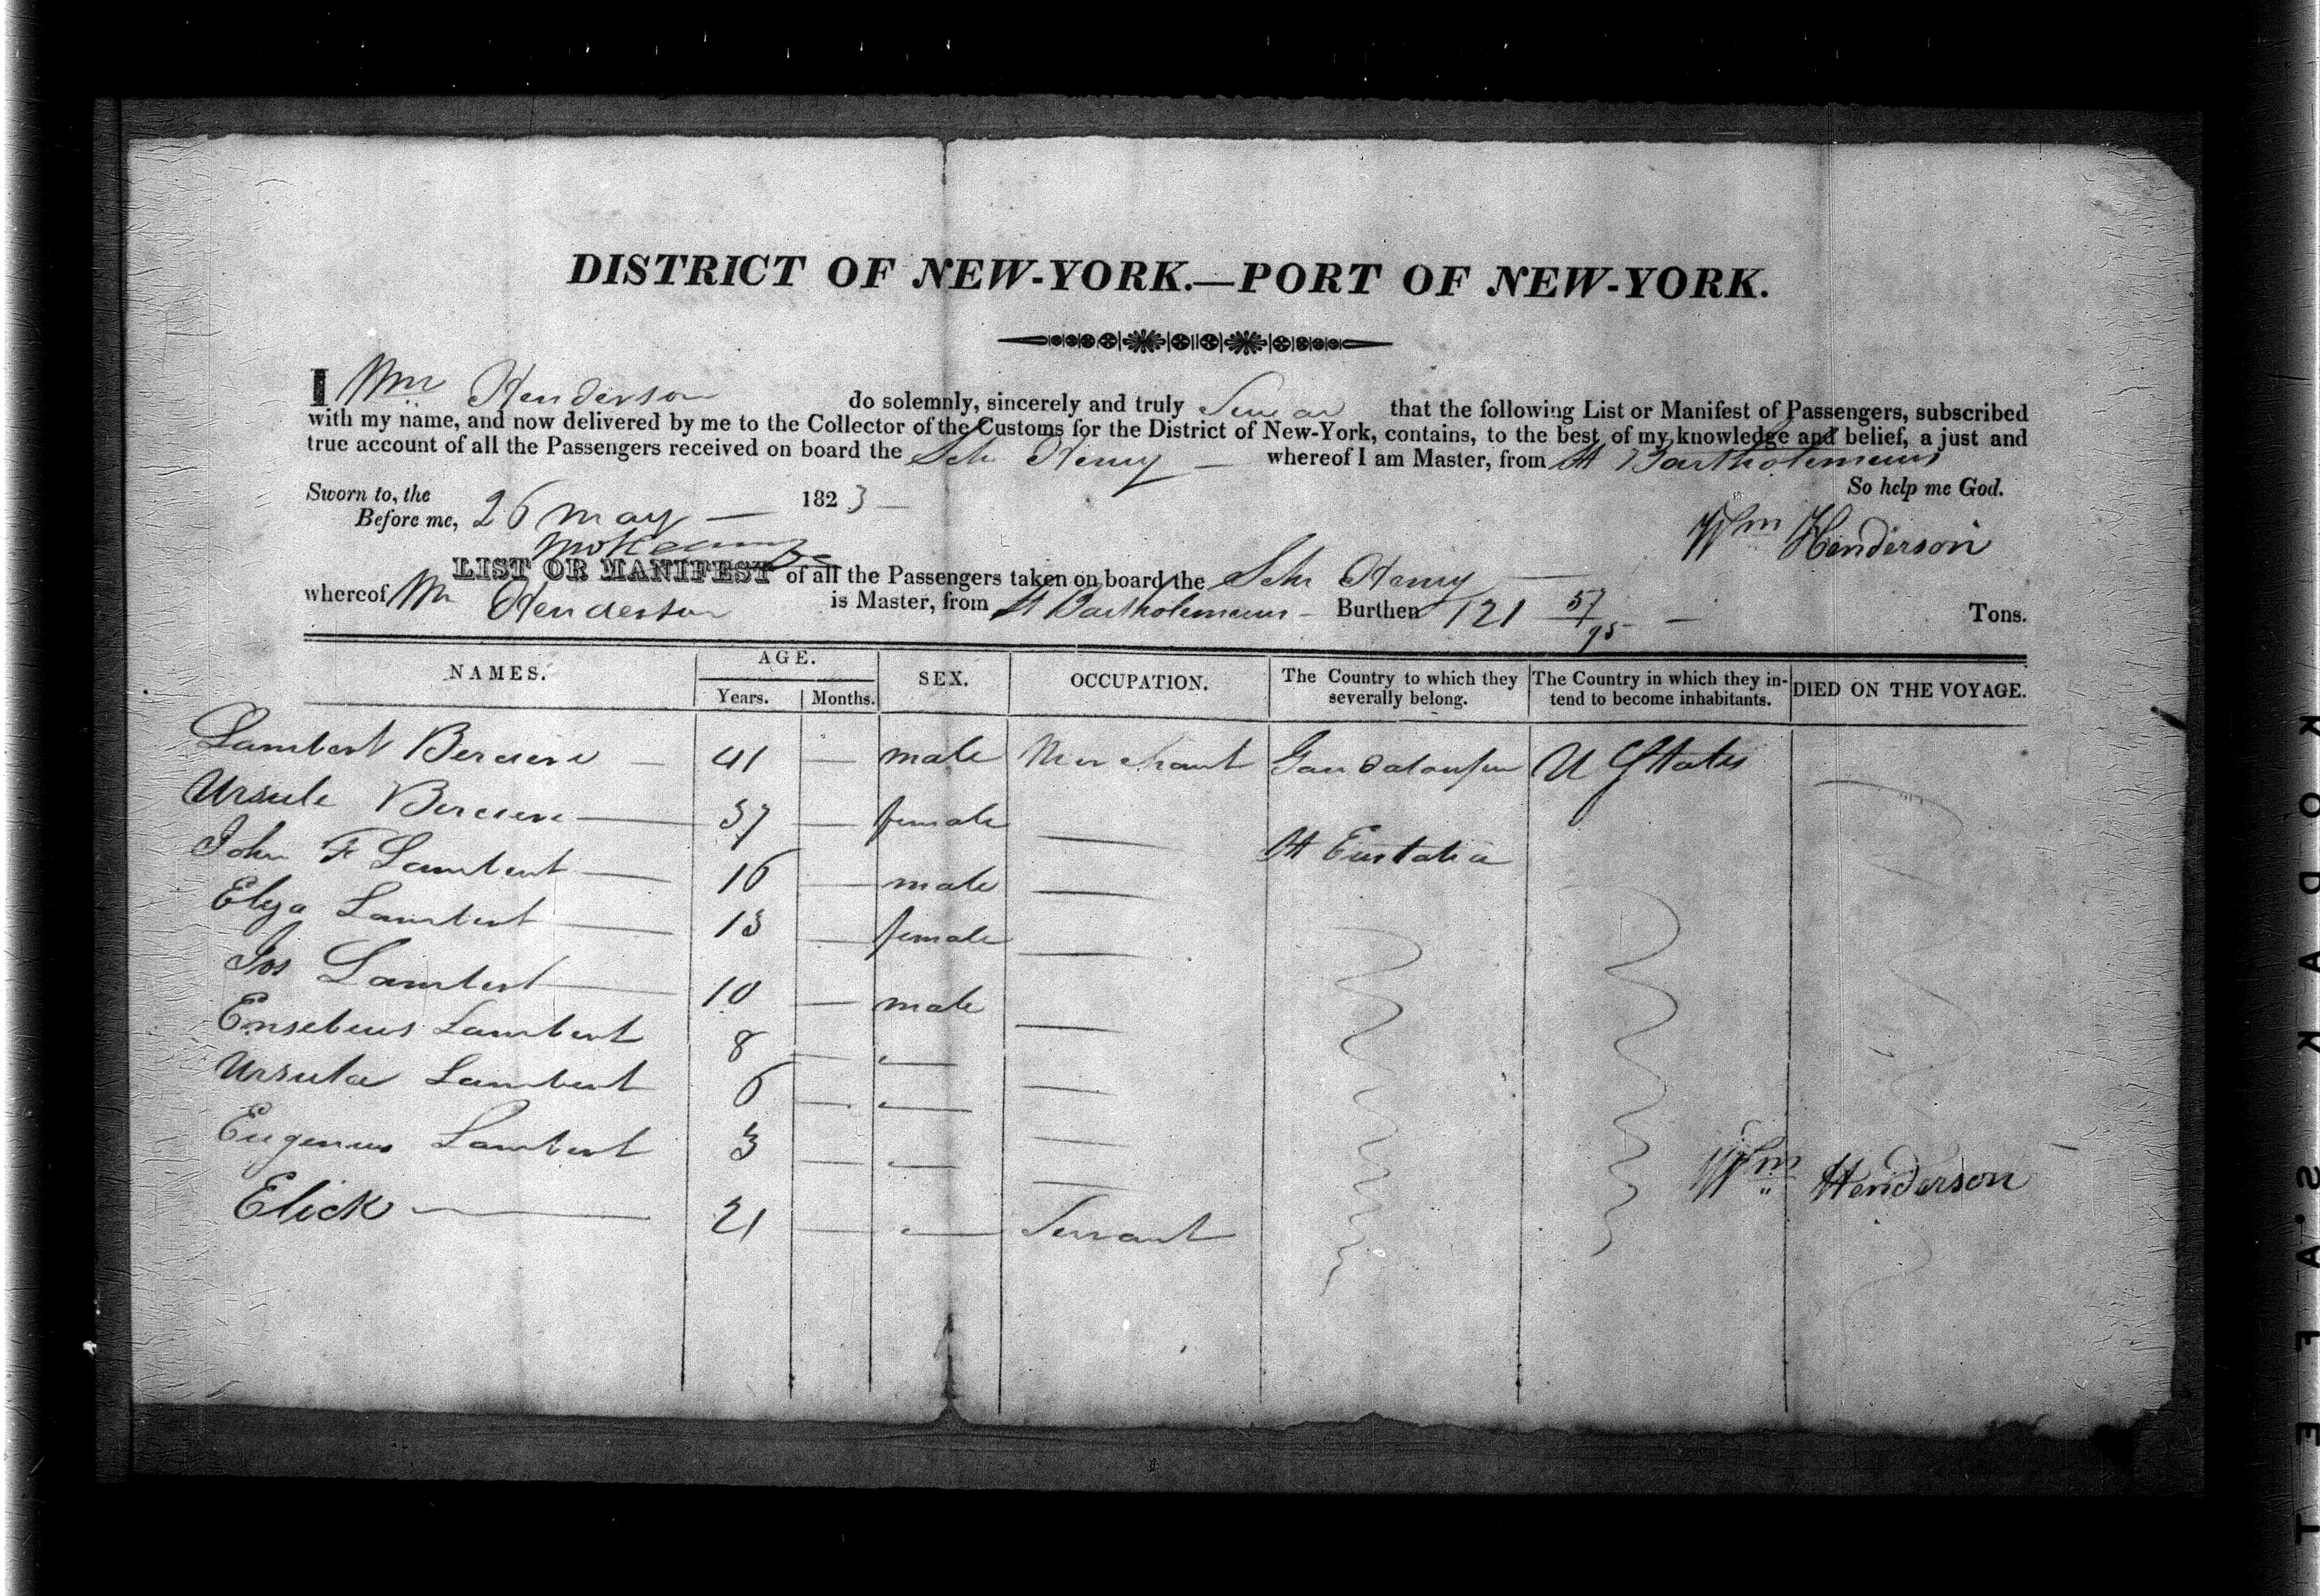 DISTRICT OF NEW-YORK.—PORT OF NEW-YORK.
I Wm Henderson do solemnly, sincerely and truly Swear that the following List or Manifest of Passengers, subscribed
with my name, and now delivered by me to the Collector of the Customs for the District of New-York, contains, to the best of my knowledge and belief, a just and
true account of all the Passengers received on board the Sch Henry — whereof I am Master, from St Bartholemews
So help me God.
Sworn to, the 26 May — 1823 —
Before me,
Wm Henderson
LIST OR MANIFEST of all the Passengers taken on board the Schr Henry —
whereof Wm Henderson is Master, from St Bartholemews - Burthen 121 57/95 — Tons.
NAMES. AGE. SEX. OCCUPATION. The Country to which they severally belong. The Country in which they intend to become inhabitants. DIED ON THE VOYAGE.
Years. Months.
Lambert — 41 — male Merchant U States
Ursule — 37 — female —
John F Lambert — 16 — male — St Eustatia
Elza Lambert — 13 — female —
Jos Lambert — 10 — male —
Eusebius Lambert 8 — " —
Ursula Lambert 6 — " —
Eugenius Lambert 3 — " —
Elick — 21 — " Servant
Wm Henderson
KODAK SAFET